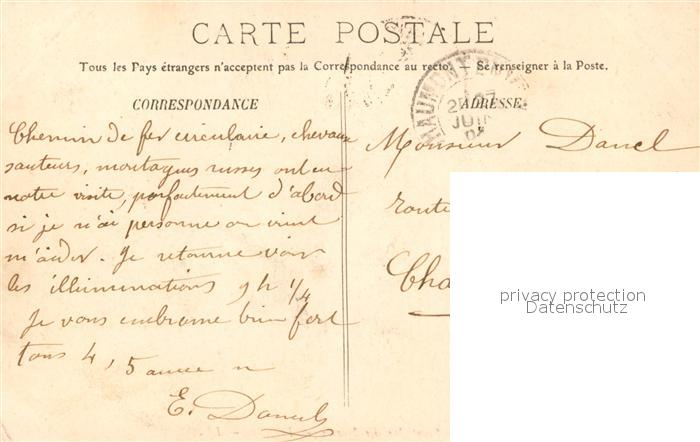 CARTE POSTALE
Tous les Pays étrangers n'acceptent pas la Correspondance au recto. — Se renseigner à la Poste.
CORRESPONDANCE
ADRESSE
JUIN
Chemin de fer circulaire, chevaux
sauteurs, montagnes russes ont eu
notre visite,
d'abord
si je n'ai personne on vient
m'aider. Je retourne voir
les illuminations 9 h 1/4
Je vous embrasse bien fort
tous 4, 5
E.
Monsieur Danel
route
Cha
privacy protection
Datenschutz